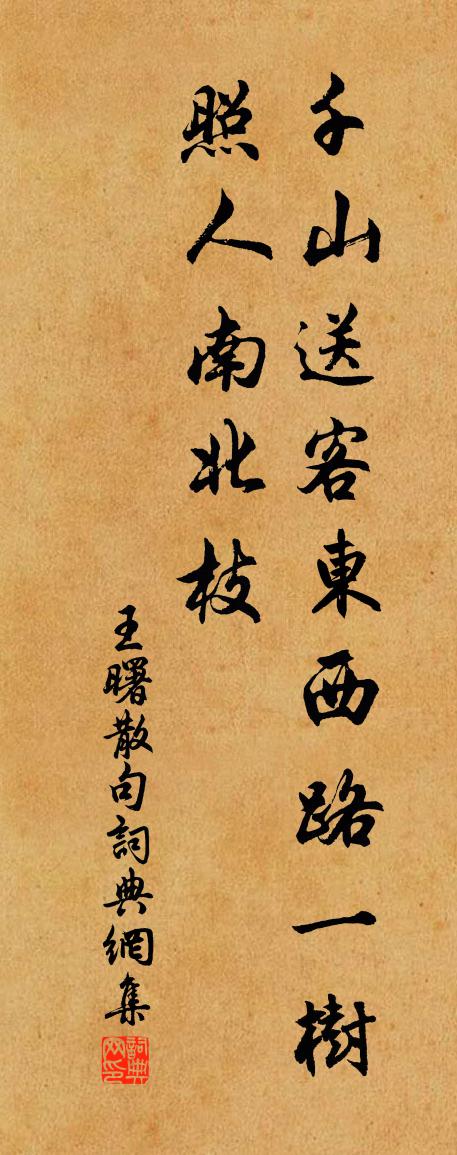 千山送客東西路一樹
照人南北枝
王曙散句詞典網集
詞典網印